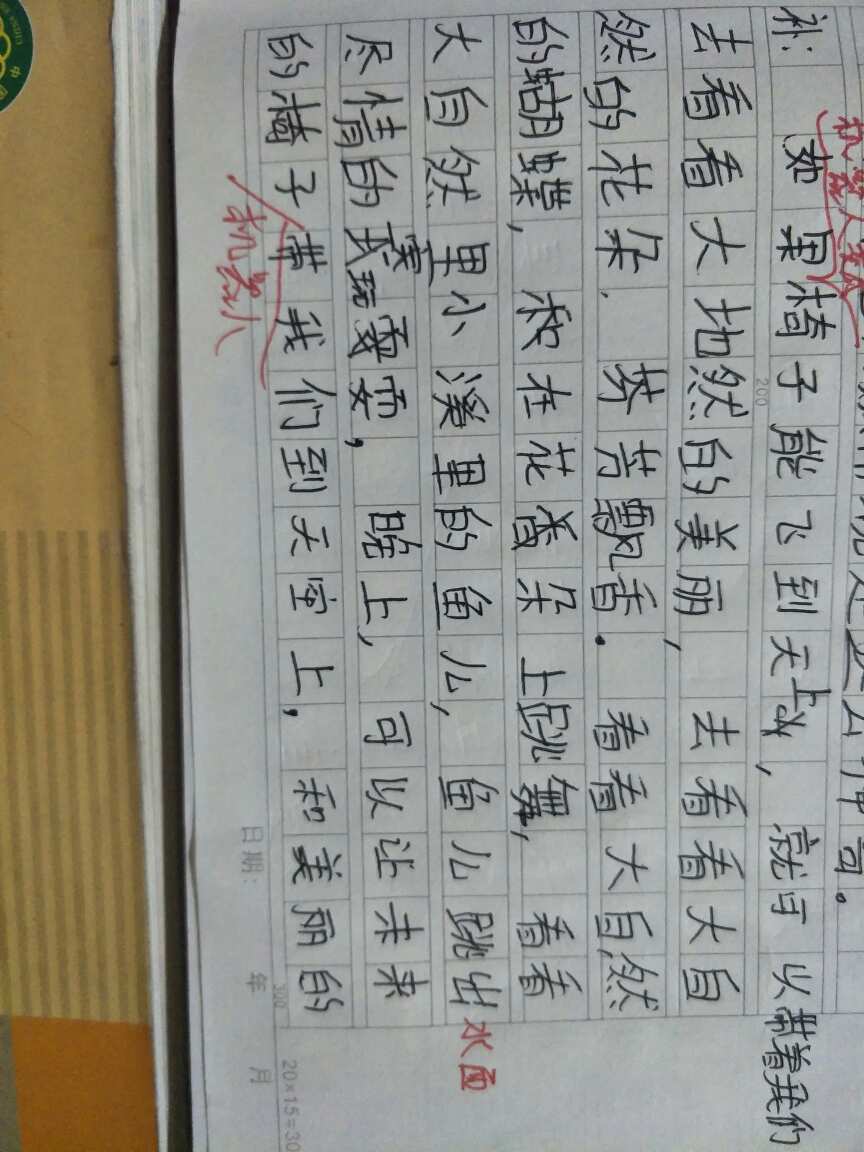 补：如果椅子能飞到天上，就可以带着我们
去看看大地然的美丽，去看看大自
然的花朵．芬芳飘香．看看大自然
的蝴蝶，在花香朵上跳舞，看看
大自然里小溪里的鱼么，鱼么跳出水面
尽情的玩耍，晚上，可以让未来
的椅子带我们到天空上，和美丽的
机器人
日期：
年
月
200
300
20×15=30